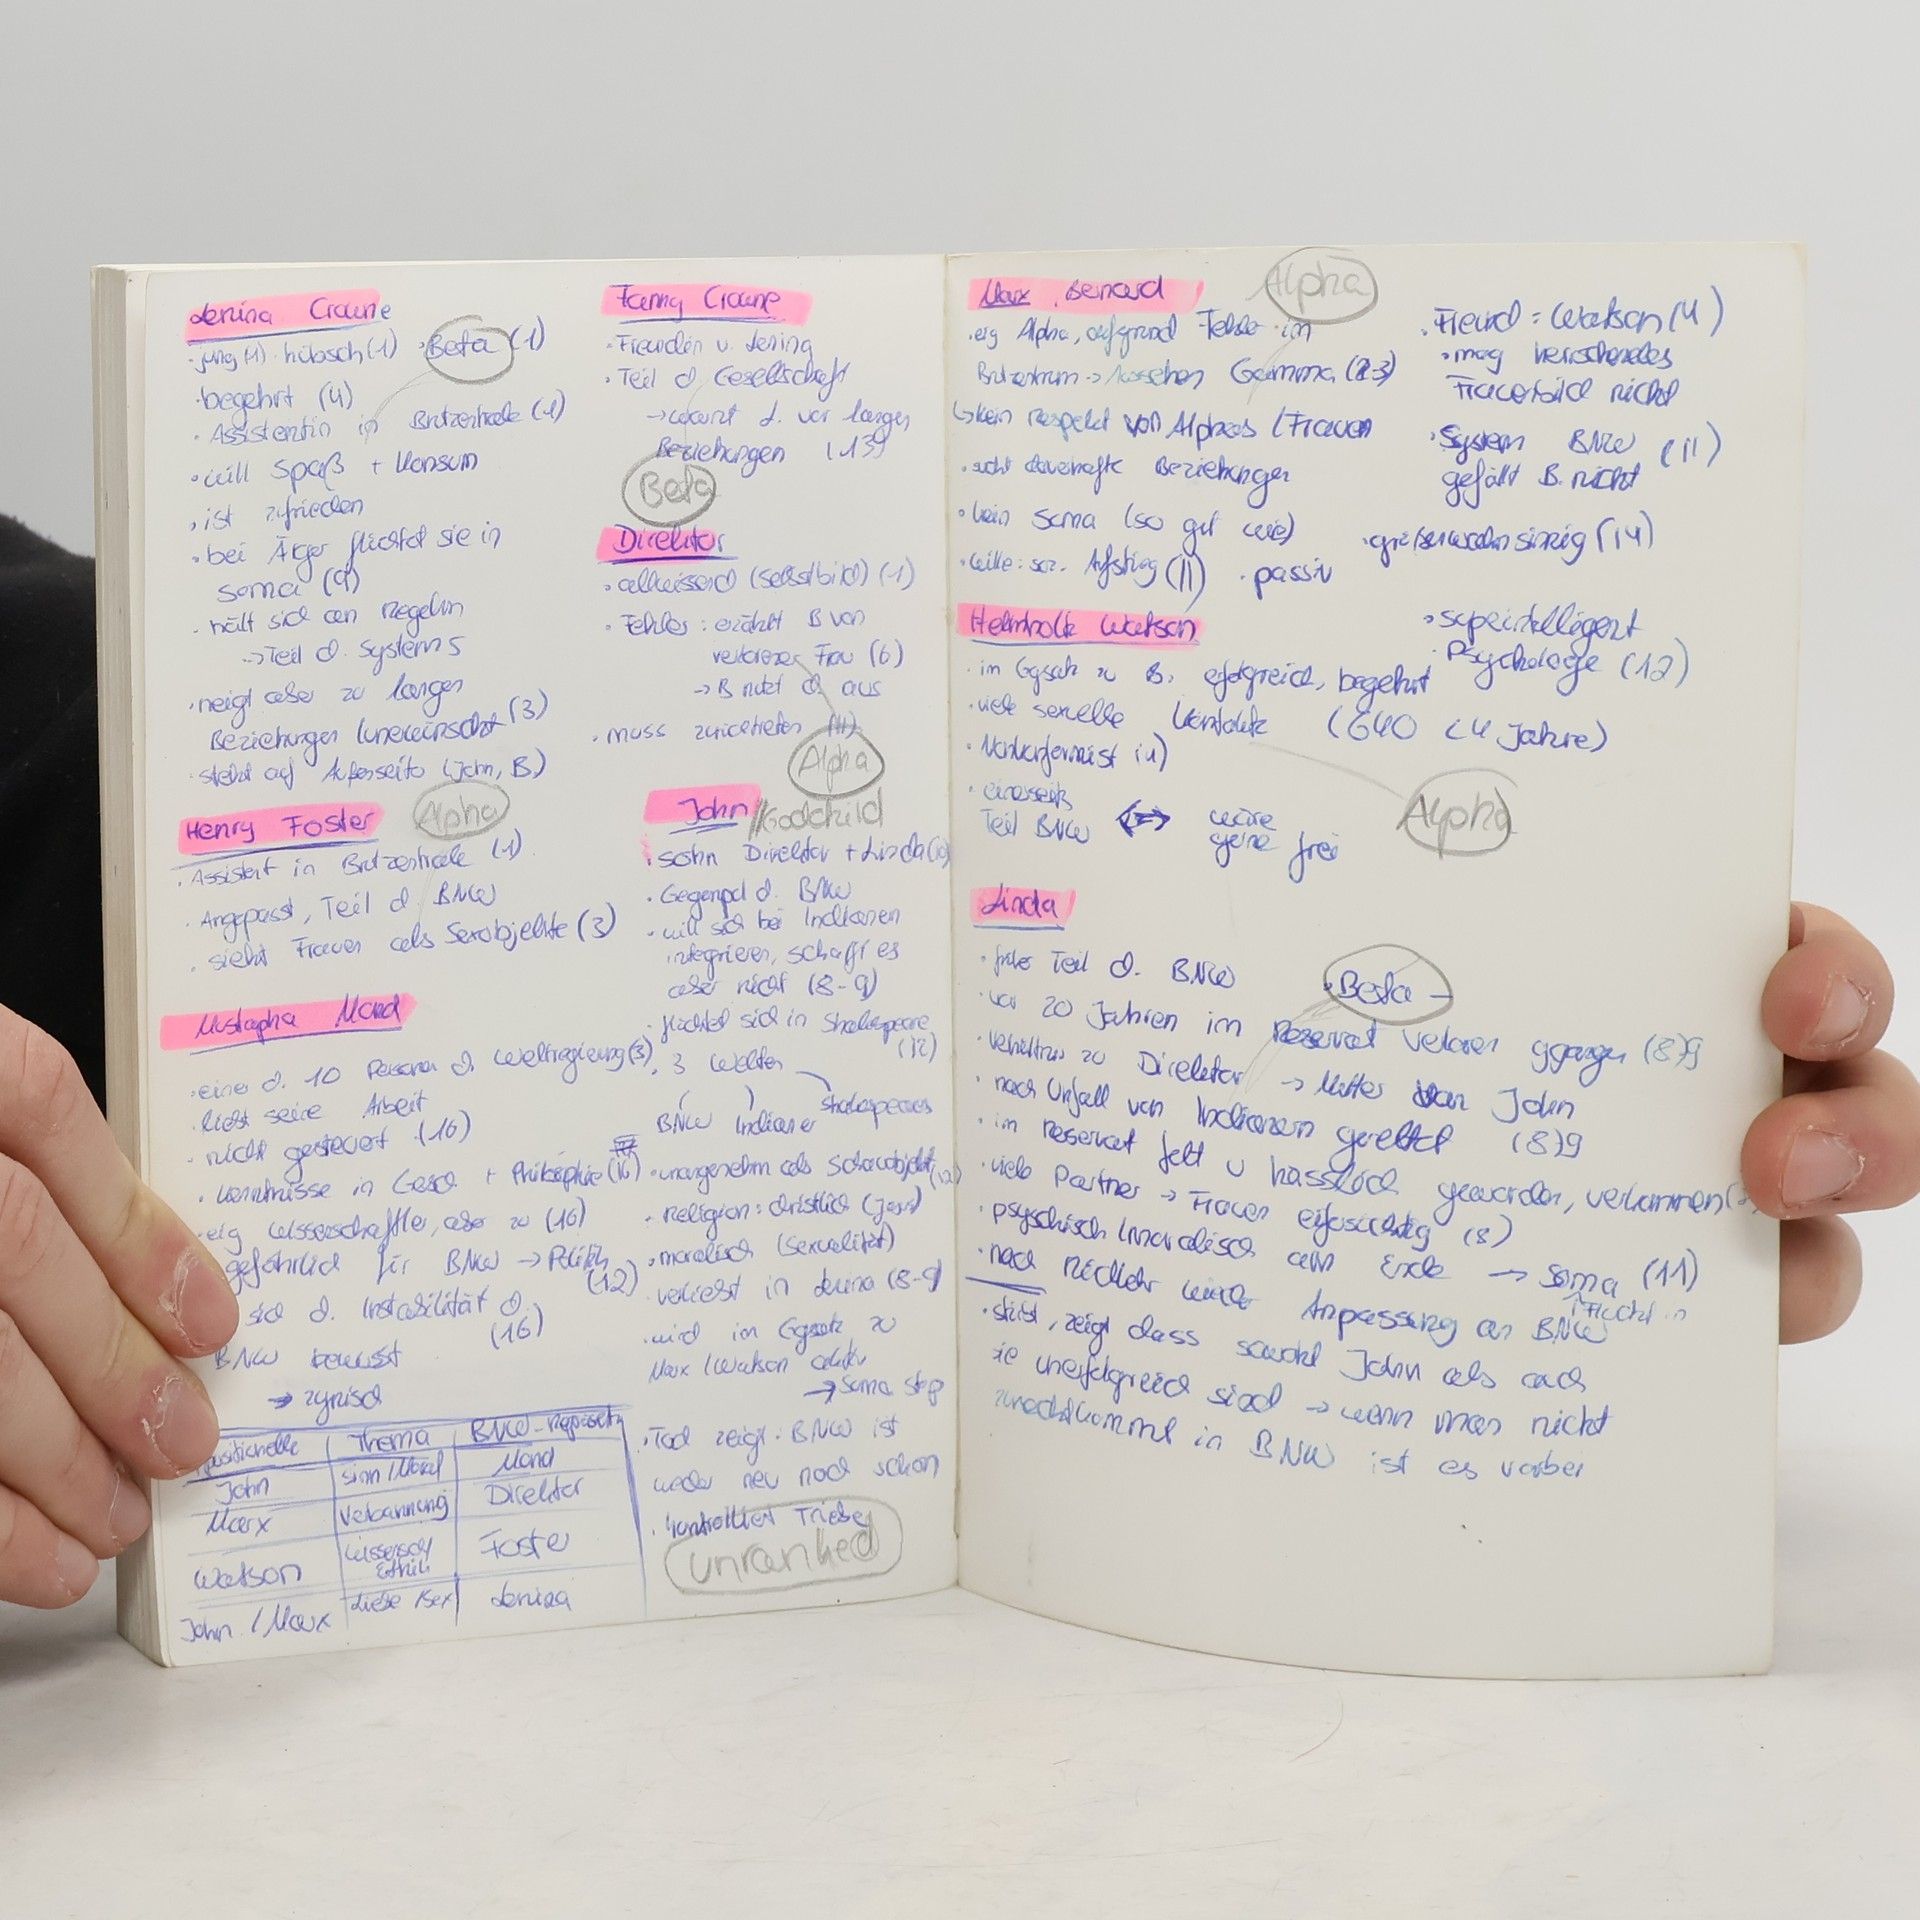 Lenina Crowne
· jung (1) · hübsch (1) · Beta (1)
· begehrt (4)
· Assistentin in Brutzentrale (1)
· will Spaß + Konsum
· ist zufrieden
· bei Ärger flüchtet sie in
soma (9)
· hält sich an Regeln
-> Teil d. Systems
· neigt aber zu langen
Beziehungen (unerwünscht (3)
· steht auf Außenseiter (John, B.)
Henry Foster
Alpha
· Assistent in Brutzentrale (1)
· Angepasst, Teil d. BNW
· sieht Frauen als Sexobjekte (3)
Mustapha Mond
· einer d. 10 Personen d. Weltregierung (3)
· liebt seine Arbeit
· nicht gesteuert (16)
· Kenntnisse in Gesch + Philosophie (16)
· eig Wissenschaftler, aber zu (16)
gefährlich für BNW -> Politik
(12)
sich d. Instabilität d.
(16)
BNW bewusst
-> zynisch
Thema BNW-
John Sinn / Moral Mond
Marx Verbannung Direktor
Watson Wissensch Ethik Foster
John / Marx Liebe / Sex Lenina
Fanny Crowne
· Freundin v. Lenina
· Teil d. Gesellschaft
-> warnt L. vor langen
Beziehungen
Beta
Direktor
· allwissend (Selbstbild) (1)
· Fehler: erzählt B von
verlorener Frau (6)
-> B nutzt d. aus
· muss zurücktreten
Alpha
John /Godchild
· Sohn Direktor + Linda
· Gegenpol d. BNW
· will sich bei Indianern
integrieren, schafft es
aber nicht (8-9)
· flüchtet sich in Shakespeare
(12)
· 3 Welten
BNW Indianer Shakespeares
· unangenehm als Schauobjekt
· Religion: christlich
· moralisch (Sexualität)
· verliebt in Lenina (8-9)
· wird im Ggsatz zu
Marx / Watson aktiv
-> Soma stop
· Tod zeigt: BNW ist
weder neu noch schön
· kontrolliert Triebe
unranked
Marx, Bernard
Alpha
· eig Alpha, aufgrund Fehler im
Brutzentrum -> Aussehen Gamma
-> kein Respekt von Alphas / Frauen
· sucht dauerhafte Beziehungen
· kein Soma (so gut wie)
· Wille: soz. Aufstieg (11) · passiv
· Freund: Watson (4)
· mag herrschendes
Frauenbild nicht
· System BNW (11)
gefällt B. nicht
· größenwahnsinnig (14)
Helmholtz Watson
· im Ggsatz zu B. erfolgreich, begehrt
· viele sexuelle Kontakte (640 < 4 Jahre)
· Nonkonformist (4)
· einerseits
Teil BNW <-> wäre
gerne frei
· superintelligent
· Psychologe (12)
Alpha
Linda
· früher Teil d. BNW
· Beta -
· vor 20 Jahren im Reservat verloren ggangen
· Verhältnis zu Direktor -> Mutter von John
· nach Unfall von Indianern gerettet
· im Reservat fett u hässlich geworden, verkommen
· viele Partner -> Frauen eifersüchtig (8)
· psychisch / moralisch am Ende -> Soma (11)
Flucht in
· nach Rückkehr wieder Anpassung an BNW
· stirbt, zeigt dass sowohl John als auch
sie unerfolgreich sind -> wenn man nicht
zurechtkommt in BNW ist es vorbei